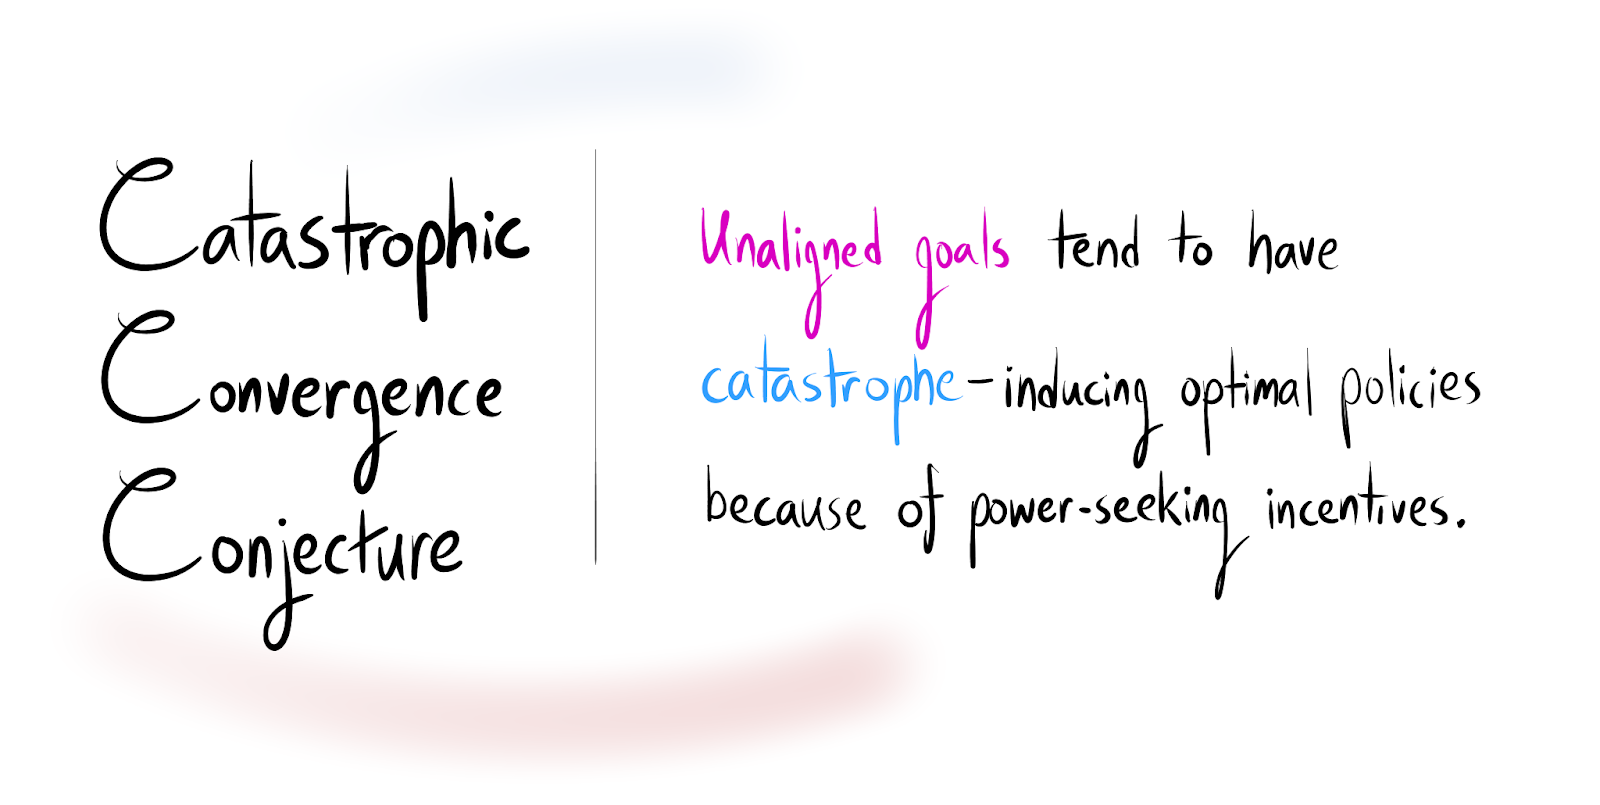 Catastrophic
Convergence
Conjecture
Unaligned goals tend to have
catastrophe-inducing optimal policies
because of power-seeking incentives.